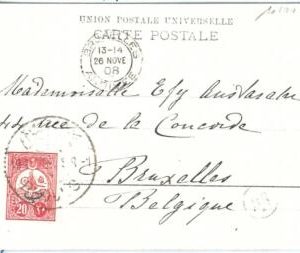 UNION POSTALE UNIVERSELLE
CARTE POSTALE
BRUXELLES
13-14
26 NOVE
08
Mademoiselle Efy
44 rue de la Concorde
Bruxelles
Belgique
20